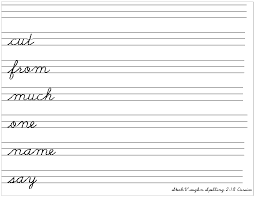 cut
from
much
one
name
say
Spelling 2.18 Cursive